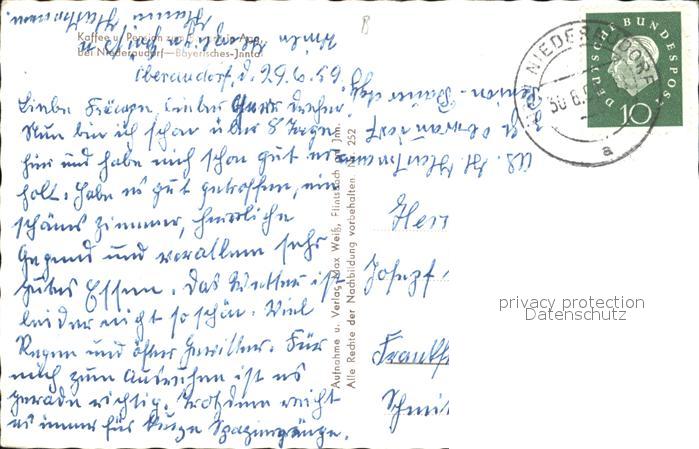 Kaffee u. Pension
bei Niederaudorf—Bayerisches-Inntal
Oberaudorf, d. 29.6.59
Liebe Frau, lieber Herr
Nun bin ich schon über 8 Tage
hier und habe mich schon gut er-
holt. Habe es gut getroffen, ein
schönes Zimmer, herrliche
Gegend und vor allem sehr
gutes Essen. Das Wetter ist
leider nicht so schön. Viel
Regen und öfter Gewitter. Für
mich zum Ausruhen ist es
gerade richtig. Trotzdem reicht
es immer für kurze Spaziergänge.
Aufnahme u. Verlag Max Weiß, Flintsbach am Inn.
Alle Rechte der Nachbildung vorbehalten. 252
DEUTSCHE BUNDESPOST
10
NIEDERAUDORF
30.6.
a
Herr
Josef
Frankf
Schmi
privacy protection
Datenschutz